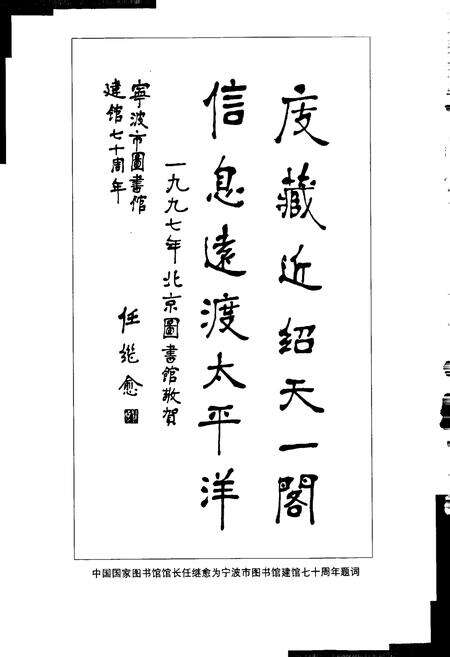 庋藏近紹天一閣
信息遠渡太平洋
一九九七年北京圖書館敬賀
寧波市圖書館
建館七十周年
任继愈
中国国家图书馆馆长任继愈为宁波市图书馆建馆七十周年题词